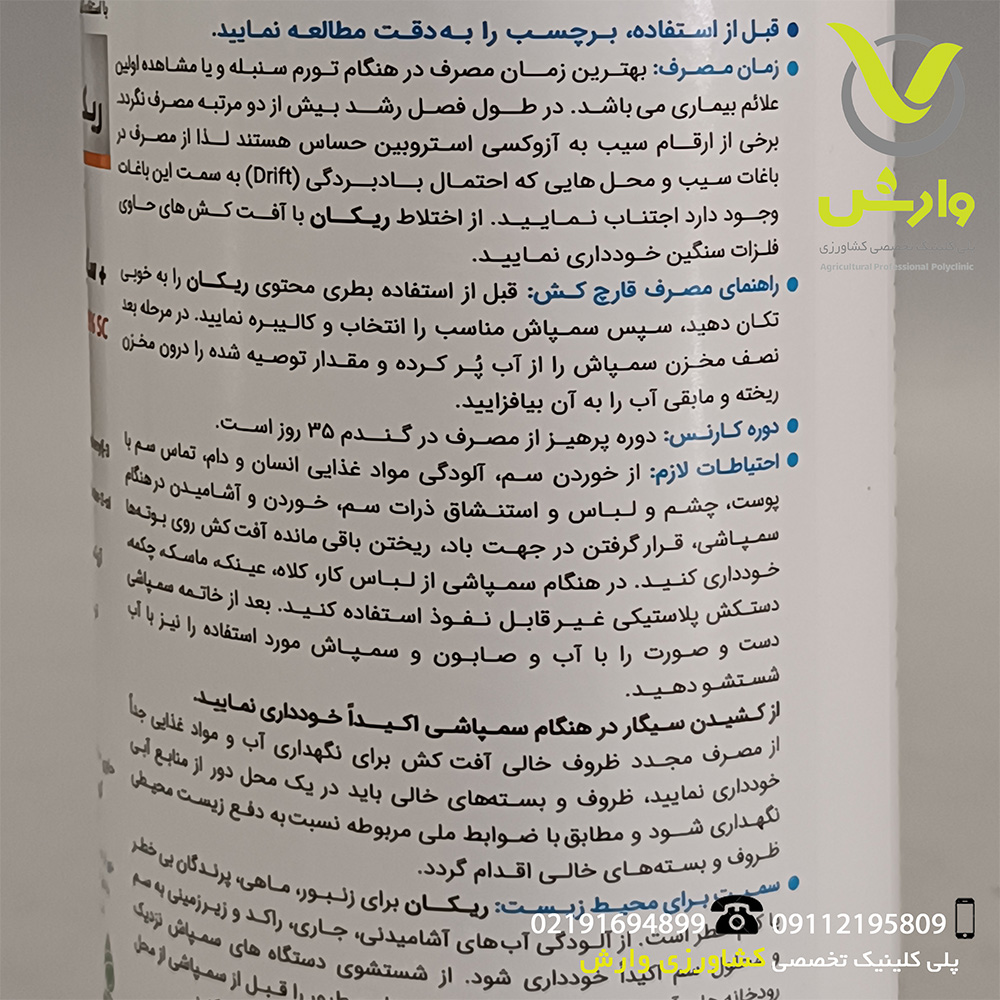 قبل از استفاده، برچسب را به دقت مطالعه نمایید.
زمان مصرف: بهترین زمان مصرف در هنگام تورم سنبله و یا مشاهده اولین
علائم بیماری می باشد. در طول فصل رشد بیش از دو مرتبه مصرف نگردد.
برخی از ارقام سیب به آزوکسی استروبین حساس هستند لذا از مصرف در
باغات سیب و محل هایی که احتمال بادبردگی (Drift) به سمت این باغات
وجود دارد اجتناب نمایید. از اختلاط ریکان با آفت کش های حاوی
فلزات سنگین خودداری نمایید.
راهنمای مصرف قارچ کش: قبل از استفاده بطری محتوی ریکان را به خوبی
تکان دهید، سپس سمپاش مناسب را انتخاب و کالیبره نمایید. در مرحله بعد
نصف مخزن سمپاش را از آب پُر کرده و مقدار توصیه شده را درون مخزن
ریخته و مابقی آب را به آن بیافزایید.
دوره کارنس: دوره پرهیز از مصرف در گندم ۳۵ روز است.
احتیاطات لازم: از خوردن سم، آلودگی مواد غذایی انسان و دام، تماس سم با
پوست، چشم و لباس و استنشاق ذرات سم، خوردن و آشامیدن در هنگام
سمپاشی، قرار گرفتن در جهت باد، ریختن باقی مانده آفت کش روی بوته‌ها
خودداری کنید. در هنگام سمپاشی از لباس کار، کلاه، عینک، ماسک، چکمه،
دستکش پلاستیکی غیر قابل نفوذ استفاده کنید. بعد از خاتمه سمپاشی
دست و صورت را با آب و صابون و سمپاش مورد استفاده را نیز با آب
شستشو دهید.
از کشیدن سیگار در هنگام سمپاشی اکیداً خودداری نمایید.
از مصرف مجدد ظروف خالی آفت کش برای نگهداری آب و مواد غذایی جداً
خودداری نمایید، ظروف و بسته‌های خالی باید در یک محل دور از منابع آبی
نگهداری شود و مطابق با ضوابط ملی مربوطه نسبت به دفع زیست محیطی
ظروف و بسته‌های خالی اقدام گردد.
سمیت برای محیط زیست: ریکان برای زنبور، ماهی، پرندگان بی خطر
یا کم خطر است. از آلودگی آب های آشامیدنی، جاری، راکد و زیرزمینی به سم
و محلول سم اکیداً خودداری شود. از شستشوی دستگاه های سمپاش نزدیک
قبل از سمپاشی از محل
SC
وارش
پلی کلینیک تخصصی کشاورزی
Agricultural Professional Polyclinic
02191694899
09112195809
پلی کلینیک تخصصی کشاورزی وارش